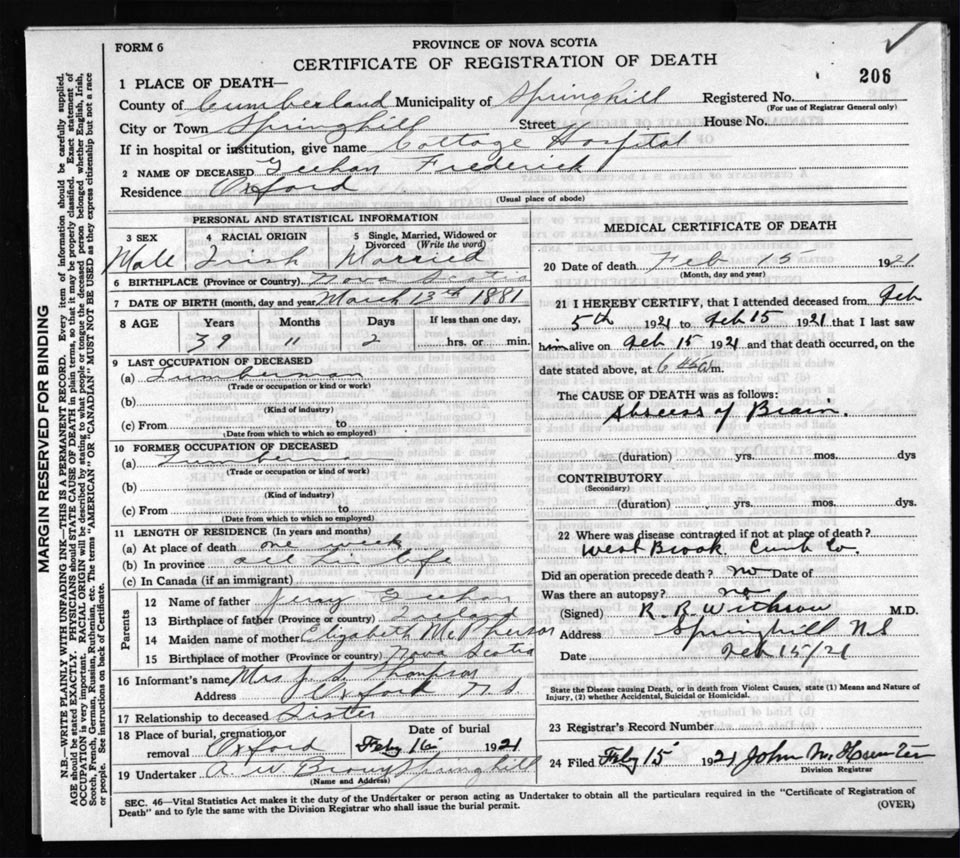 FORM 6
PROVINCE OF NOVA SCOTIA
CERTIFICATE OF REGISTRATION OF DEATH
206
1 PLACE OF DEATH—
County of Cumberland Municipality of Springhill Registered No.
(For use of Registrar General only)
City or Town Springhill Street House No.
If in hospital or institution, give name Cottage Hospital
2 NAME OF DECEASED Frederick
Residence Oxford
(Usual place of abode)
PERSONAL AND STATISTICAL INFORMATION
3 SEX 4 RACIAL ORIGIN 5 Single, Married, Widowed or Divorced (Write the word)
Male Irish Married
6 BIRTHPLACE (Province or Country) Nova Scotia
7 DATE OF BIRTH (month, day and year) March 13th 1881
8 AGE Years Months Days If less than one day,
39 " 2 hrs. or min.
9 LAST OCCUPATION OF DECEASED
(a) Lumberman
(Trade or occupation or kind of work)
(b)
(Kind of industry)
(c) From to
(Date from which to which so employed)
10 FORMER OCCUPATION OF DECEASED
(a) Lumberman
(Trade or occupation or kind of work)
(b)
(Kind of industry)
(c) From to
(Date from which to which so employed)
11 LENGTH OF RESIDENCE (In years and months)
(a) At place of death one week
(b) In province all his life
(c) In Canada (if an immigrant)
Parents
12 Name of father
13 Birthplace of father (Province or country) Ireland
14 Maiden name of mother Elizabeth McPherson
15 Birthplace of mother (Province or country) Nova Scotia
16 Informant's name Mrs Thompson
Address Oxford N.S.
17 Relationship to deceased Sister
18 Place of burial, cremation or removal Oxford Date of burial Feby 16 1921
19 Undertaker A W Brown Springhill
(Name and Address)
MEDICAL CERTIFICATE OF DEATH
20 Date of death Feb 15 1921
(Month, day and year)
21 I HEREBY CERTIFY, that I attended deceased from Feb
5th 1921 to Feb 15 1921 that I last saw
him alive on Feb 15 1921 and that death occurred, on the
date stated above, at 6 m.
The CAUSE OF DEATH was as follows:
Abscess of Brain.
(duration) yrs. mos. dys
CONTRIBUTORY
(Secondary)
(duration) yrs. mos. dys.
22 Where was disease contracted if not at place of death?
West Brook Cumb Co.
Did an operation precede death? no Date of
Was there an autopsy? no
(Signed) R. B. M.D.
Address Springhill N S
Date Feb 15/21
State the Disease causing Death, or in death from Violent Causes, state (1) Means and Nature of
Injury, (2) whether Accidental, Suicidal or Homicidal.
23 Registrar's Record Number
24 Filed Feby 15 1921 John M.
Division Registrar
SEC. 46—Vital Statistics Act makes it the duty of the Undertaker or person acting as Undertaker to obtain all the particulars required in the "Certificate of Registration of
Death" and to fyle the same with the Division Registrar who shall issue the burial permit.
(OVER)
MARGIN RESERVED FOR BINDING
N.B.—WRITE PLAINLY WITH UNFADING INK—THIS IS A PERMANENT RECORD. Every item of information should be carefully supplied.
AGE should be stated EXACTLY. PHYSICIANS should STATE CAUSE OF DEATH in plain terms, so that it may be properly classified. Exact statement of
OCCUPATION is very important. RACIAL ORIGIN will be described by stating to what people or tongue the deceased person belonged whether English, Irish,
Scotch, French, German, Russian, Ruthenian, etc. The terms "AMERICAN" OR "CANADIAN" MUST NOT BE USED as they express citizenship but not a race
or people. See instructions on back of Certificate.